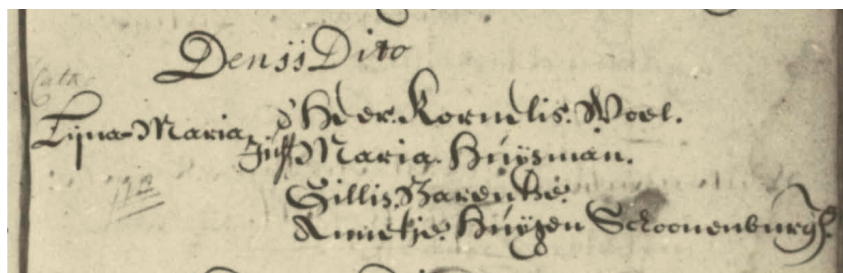 Den 11 Dito
Cata
Lijna Maria d'Heer. Kornelis. Woel.
Juff Maria. Húijsman.
Gillis. Barentse.
Annetje. Húijgen Schoonenburgh.